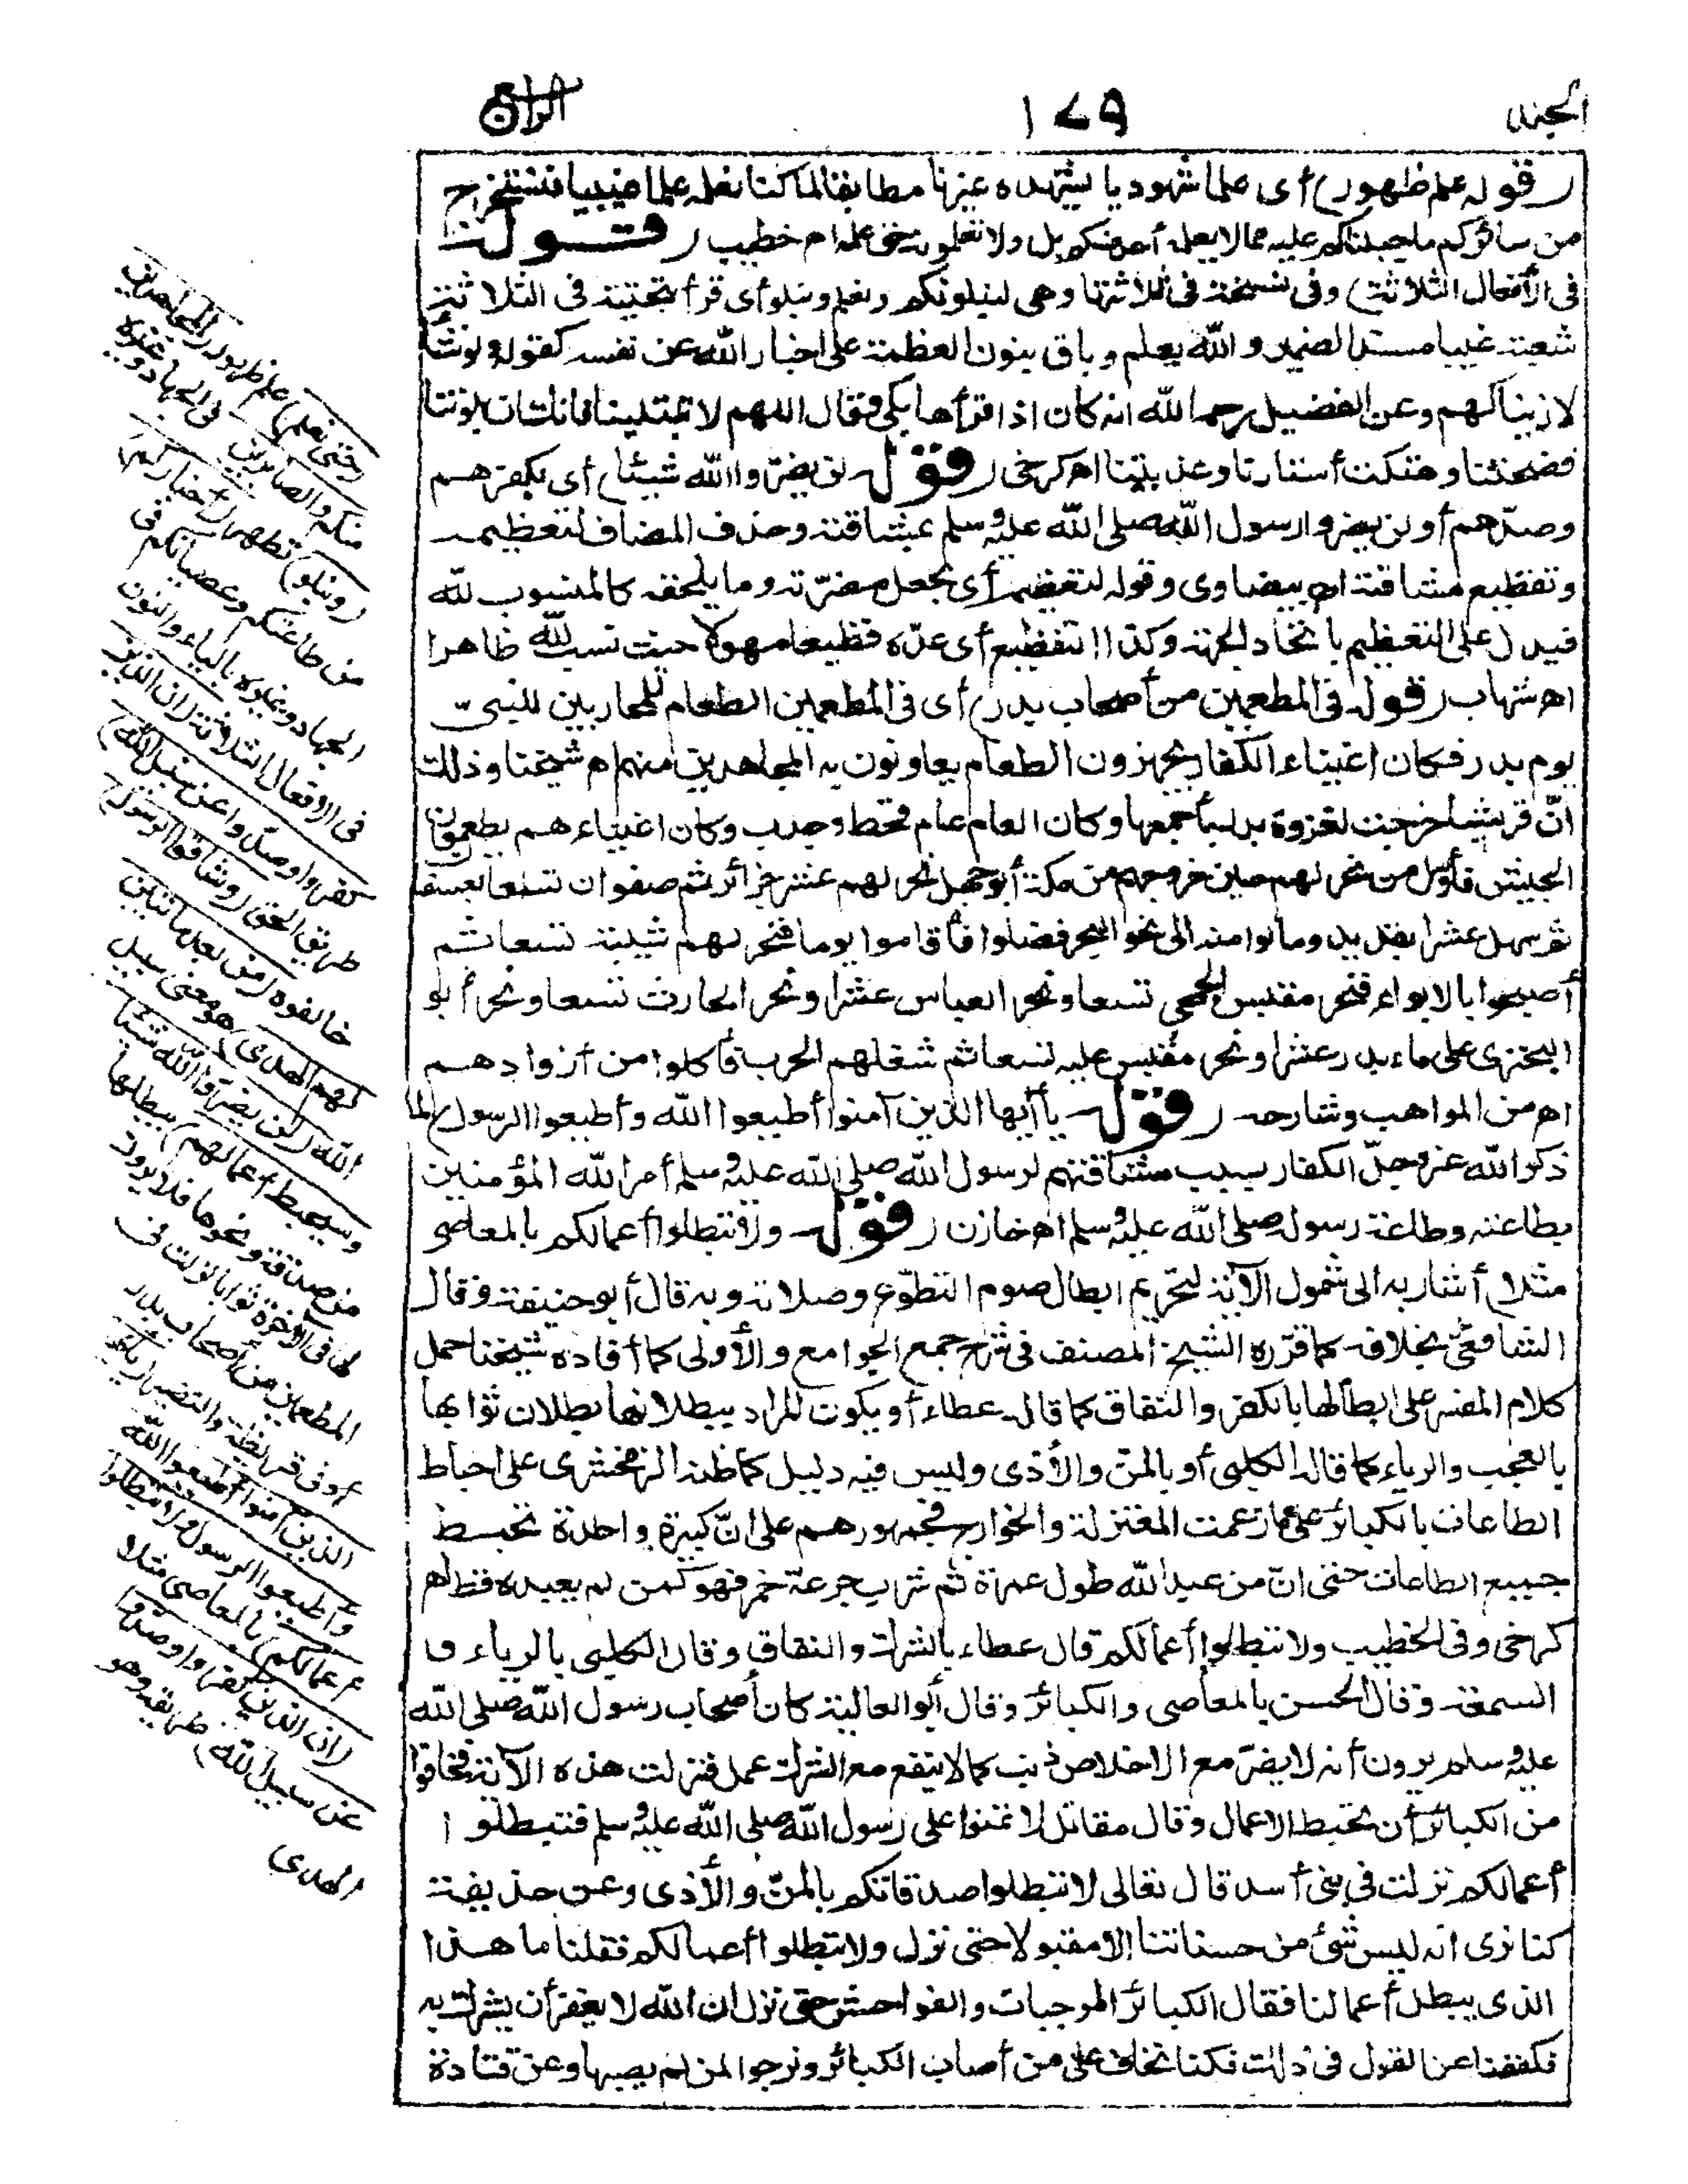 الجزء ١٧٩ الرابع
(قوله علم ظهور) أى علما شهوديا يشهده غيرنا مطابقا لما كنا نعلمه علما غيبيا فنستخرج
من سائركم ما جبلناكم عليه مما لا يعلمه أحد منكم بل ولا تعلمونه حق علمه اه خطيب (قوله
فى الأفعال الثلاثة) وفى نسخة فى ثلاثتها وهى لنبلونكم ونعلم ونبلو أى قرأ بتحتية فى الثلاثة
شعبة غيبا مسندا لضمير والله يعلم وباق بنون العظمة على اخبار الله عن نفسه كقوله ولو نشاء
لأريناكهم وعن الفضيل رحمه الله انه كان اذا قرأها بكى وقال اللهم لا تبتلينا فانك ان بلوتنا
فضحتنا وهتكت أستارنا وعذبتنا اه كرخى (قوله لن يضروا الله شيئا) أى بكفرهم
وصدّهم أو لن يضروا رسول الله صلى الله عليه وسلم بمشاقته وحذف المضاف لتعظيمه
وتفظيع مشاقته اه بيضاوى وقوله لتعظيمه أى بجعل مضرّته وما يلحقه كالمنسوب لله
فيدل على التعظيم باتحاد الجهة وكذا التفظيع أى عدّه فظيعا مهولا حيث نسب لله ظاهرا
اه شهاب (قوله فى المطعمين من أصحاب بدر) أى فى المطعمين الطعام للمحاربين للنبىّ
يوم بدر فكان اغنياء الكفار يجهزون الطعام يعاونون به المجاهدين منهم اه شيخنا وذلك
انّ قريشا خرجت لغزوة بدر بأجمعها وكان العام عام قحط وجدب وكان اغنياءهم يطعمون
الجيش فأوّل من نحر لهم حين خروجهم من مكة أبو جهل نحر لهم عشر جزائر ثم صفوان تسعا بعسفان
ثم سهل عشرا بقديد ومالوا منه الى نحو البحر فضلوا فأقاموا يوما فنحر لهم شيبة تسعا ثم
أصبحوا بالابواء فنحر مقيس الجمحى تسعا ونحر العباس عشرا ونحر الحارث تسعا ونحر أبو
البخترى على ماء بدر عشرا ونحر مقيس عليه تسعا ثم شغلهم الحرب فأكلوا من أزوادهم
اه من المواهب وشارحه (قوله يا أيها الذين آمنوا أطيعوا الله وأطيعوا الرسول) لما
ذكر الله عز وجلّ الكفار بسبب مشاقتهم لرسول الله صلى الله عليه وسلم أمر الله المؤمنين
بطاعته وطاعة رسوله صلى الله عليه وسلم اه خازن (قوله ولا تبطلوا أعمالكم بالمعاصى
مثلا) أشار به الى شمول الآية لتحريم ابطال صوم التطوّع وصلاته وبه قال أبو حنيفة وقال
الشافعىّ بخلافه كما قرّره الشيخ المصنف فى شرح جمع الجوامع والأولى كما أفاده شيخنا حمل
كلام المفسر على ابطالها بالكفر والنفاق كما قال عطاء أو يكون المراد ببطلانها بطلان ثوابها
بالعجب والرياء كما قاله الكلبى أو بالمنّ والأذى وليس فيه دليل كما ظنه الزمخشرى على احباط
الطاعات بالكبائر على ما زعمت المعتزلة والخوارج فجمهورهم على انّ كبيرة واحدة تحبط
جميع الطاعات حتى انّ من عبد الله طول عمره ثم شرب جرعة خمر فهو كمن لم يعبده قط اه
كرخى وفى الخطيب ولا تبطلوا أعمالكم قال عطاء بالشرك والنفاق وقال الكلبى بالرياء و
السمعة وقال الحسن بالمعاصى والكبائر وقال أبو العالية كان أصحاب رسول الله صلى الله
عليه وسلم يرون أنه لا يضرّ مع الاخلاص ذنب كما لا ينفع مع الشرك عمل فنزلت هذه الآية فخافوا
من الكبائر أن تحبط الاعمال وقال مقاتل لا تمنوا على رسول الله صلى الله عليه وسلم فتبطلوا
أعمالكم نزلت فى بنى أسد قال تعالى لا تبطلوا صدقاتكم بالمنّ والأذى وعن حذيفة
كنا نرى انه ليس شئ من حسناتنا إلا مقبولا حتى نزل ولا تبطلوا أعمالكم فقلنا ما هذا
الذى يبطل أعمالنا فقال الكبائر الموجبات والفواحش حتى نزل ان الله لا يغفر أن يشرك به
فكففنا عن القول فى ذلك فكنا نخاف على من أصاب الكبائر ونرجوا لمن لم يصبها وعن قتادة
(حتى نعلم) علم ظهور (المجاهدين
منكم والصابرين) فى الجهاد وغيره
(ونبلو) نظهر (أخباركم)
من طاعتكم وعصيانكم فى
الجهاد وغيره بالياء والنون
فى الافعال الثلاثة (ان الذين
كفروا وصدّوا عن سبيل الله)
طريق الحق (وشاقوا الرسول)
خالفوه (من بعد ما تبين
لهم الهدى) هو معنى سبيل
الله (لن يضروا الله شيئا
وسيحبط أعمالهم) يبطلها
من صدقة ونحوها فلا يرون
لها فى الآخرة ثوابا نزلت فى
المطعمين من أصحاب بدر
أو فى قريظة والنضير (يا أيها
الذين آمنوا أطيعوا الله
وأطيعوا الرسول ولا تبطلوا
أعمالكم) بالمعاصى مثلا
(ان الذين كفروا وصدّوا
عن سبيل الله) طريقه وهو
الهدى